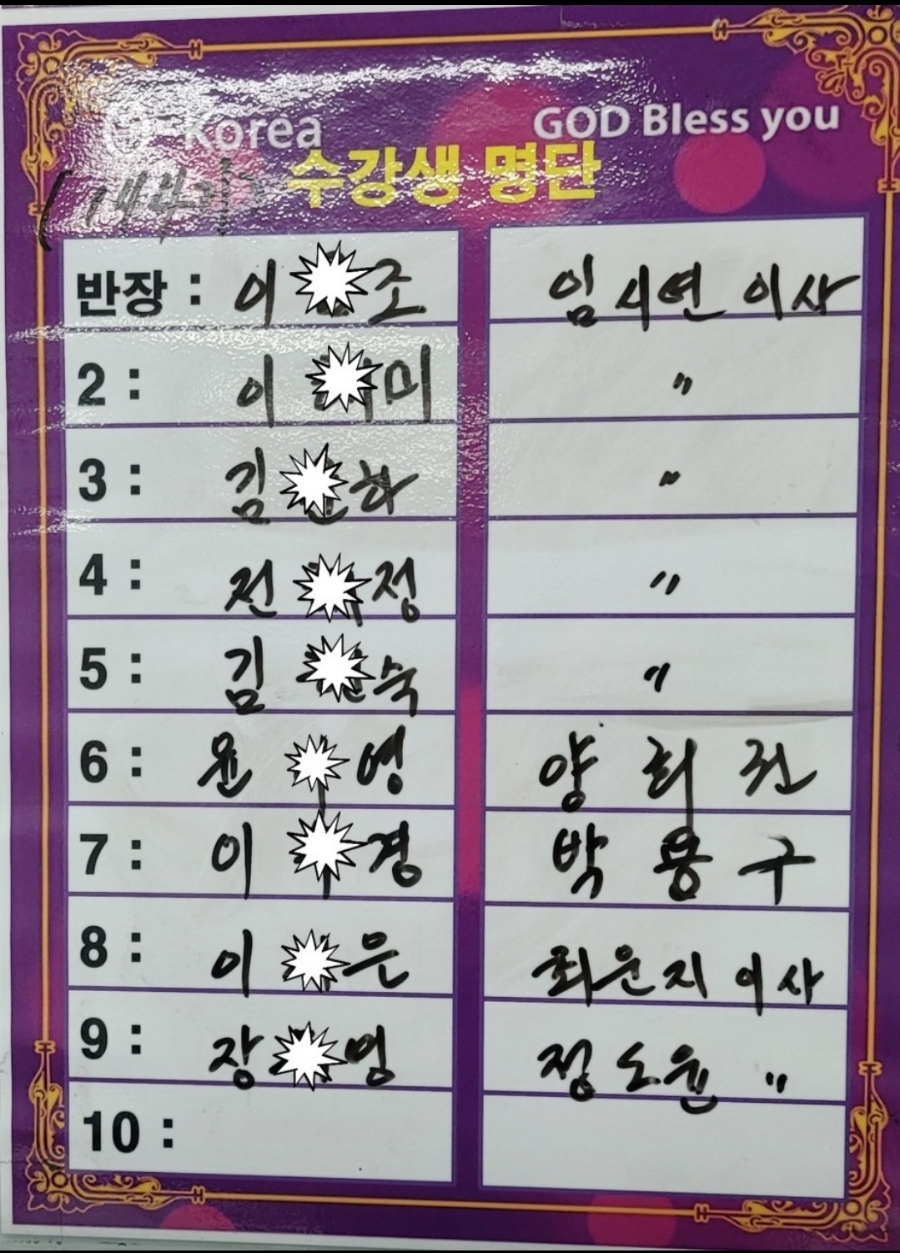 Korea
GOD Bless you
수강생 명단
반장 : 이 조 임시연 이사
2 : 이 미 〃
3 : 김 하 〃
4 : 전 정 〃
5 : 김 숙 〃
6 : 윤 영 양희진
7 : 이 경 박용구
8 : 이 은 최은지 이사
9 : 장 영 정도윤 〃
10 :